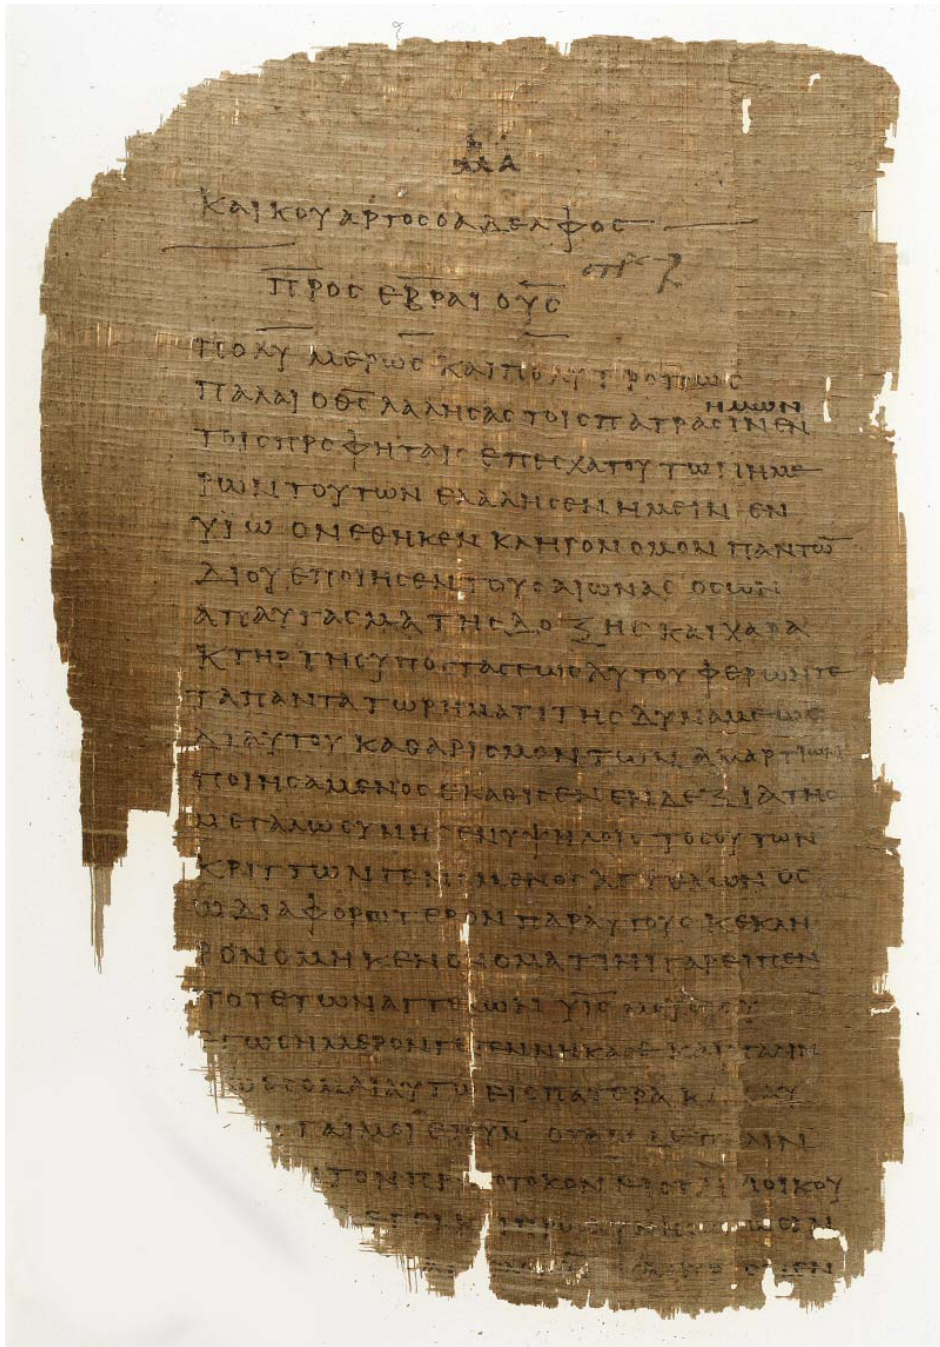 ΜΑ
ΚΑΙ ΚΟΥΑΡΤΟΣ Ο ΑΔΕΛΦΟΣ
ΠΡΟΣ ΕΒΡΑΙΟΥΣ
ΠΟΛΥΜΕΡΩΣ ΚΑΙ ΠΟΛΥΤΡΟΠΩΣ
ΗΜΩΝ
ΠΑΛΑΙ Ο ΘΣ ΛΑΛΗΣΑΣ ΤΟΙΣ ΠΑΤΡΑΣΙΝ ΕΝ
ΤΟΙΣ ΠΡΟΦΗΤΑΙΣ ΕΠ ΕΣΧΑΤΟΥ ΤΩΝ ΗΜΕ
ΡΩΝ ΤΟΥΤΩΝ ΕΛΑΛΗΣΕΝ ΗΜΕΙΝ ΕΝ
ΥΙΩ ΟΝ ΕΘΗΚΕΝ ΚΛΗΡΟΝΟΜΟΝ ΠΑΝΤΩ̅
ΔΙ ΟΥ ΕΠΟΙΗΣΕΝ ΤΟΥΣ ΑΙΩΝΑΣ ΟΣ ΩΝ
ΑΠΑΥΓΑΣΜΑ ΤΗΣ ΔΟΞΗΣ ΚΑΙ ΧΑΡΑ
ΚΤΗΡ ΤΗΣ ΥΠΟΣΤΑΣΕΩΣ ΑΥΤΟΥ ΦΕΡΩΝ ΤΕ
ΤΑ ΠΑΝΤΑ ΤΩ ΡΗΜΑΤΙ ΤΗΣ ΔΥΝΑΜΕΩΣ
ΔΙ ΑΥΤΟΥ ΚΑΘΑΡΙΣΜΟΝ ΤΩΝ ΑΜΑΡΤΙΩΝ
ΠΟΙΗΣΑΜΕΝΟΣ ΕΚΑΘΙΣΕΝ ΕΝ ΔΕΞΙΑ ΤΗΣ
ΜΕΓΑΛΩΣΥΝΗΣ ΕΝ ΥΨΗΛΟΙΣ ΤΟΣΟΥΤΩΝ
ΚΡΙΤΤΩΝ ΓΕΝΟΜΕΝΟΣ ΑΓΓΕΛΩΝ ΟΣ
Ω ΔΙΑΦΟΡΩΤΕΡΟΝ ΠΑΡ ΑΥΤΟΥΣ ΚΕΚΛΗ
ΡΟΝΟΜΗΚΕΝ ΟΝΟΜΑ ΤΙΝΙ ΓΑΡ ΕΙΠΕΝ
ΠΟΤΕ ΤΩΝ ΑΓΓΕΛΩΝ ΥΙΣ ΜΟΥ ΕΙ ΣΥ
ΕΓΩ ΣΗΜΕΡΟΝ ΓΕΓΕΝΝΗΚΑ ΣΕ ΚΑΙ ΠΑΛΙΝ
ΕΣΟΜΑΙ ΑΥΤΩ ΕΙΣ ΠΑΤΕΡΑ
ΤΟΝ ΠΡΩΤΟΤΟΚΟΝ ΕΙΣ ΤΗΝ ΟΙΚΟΥ